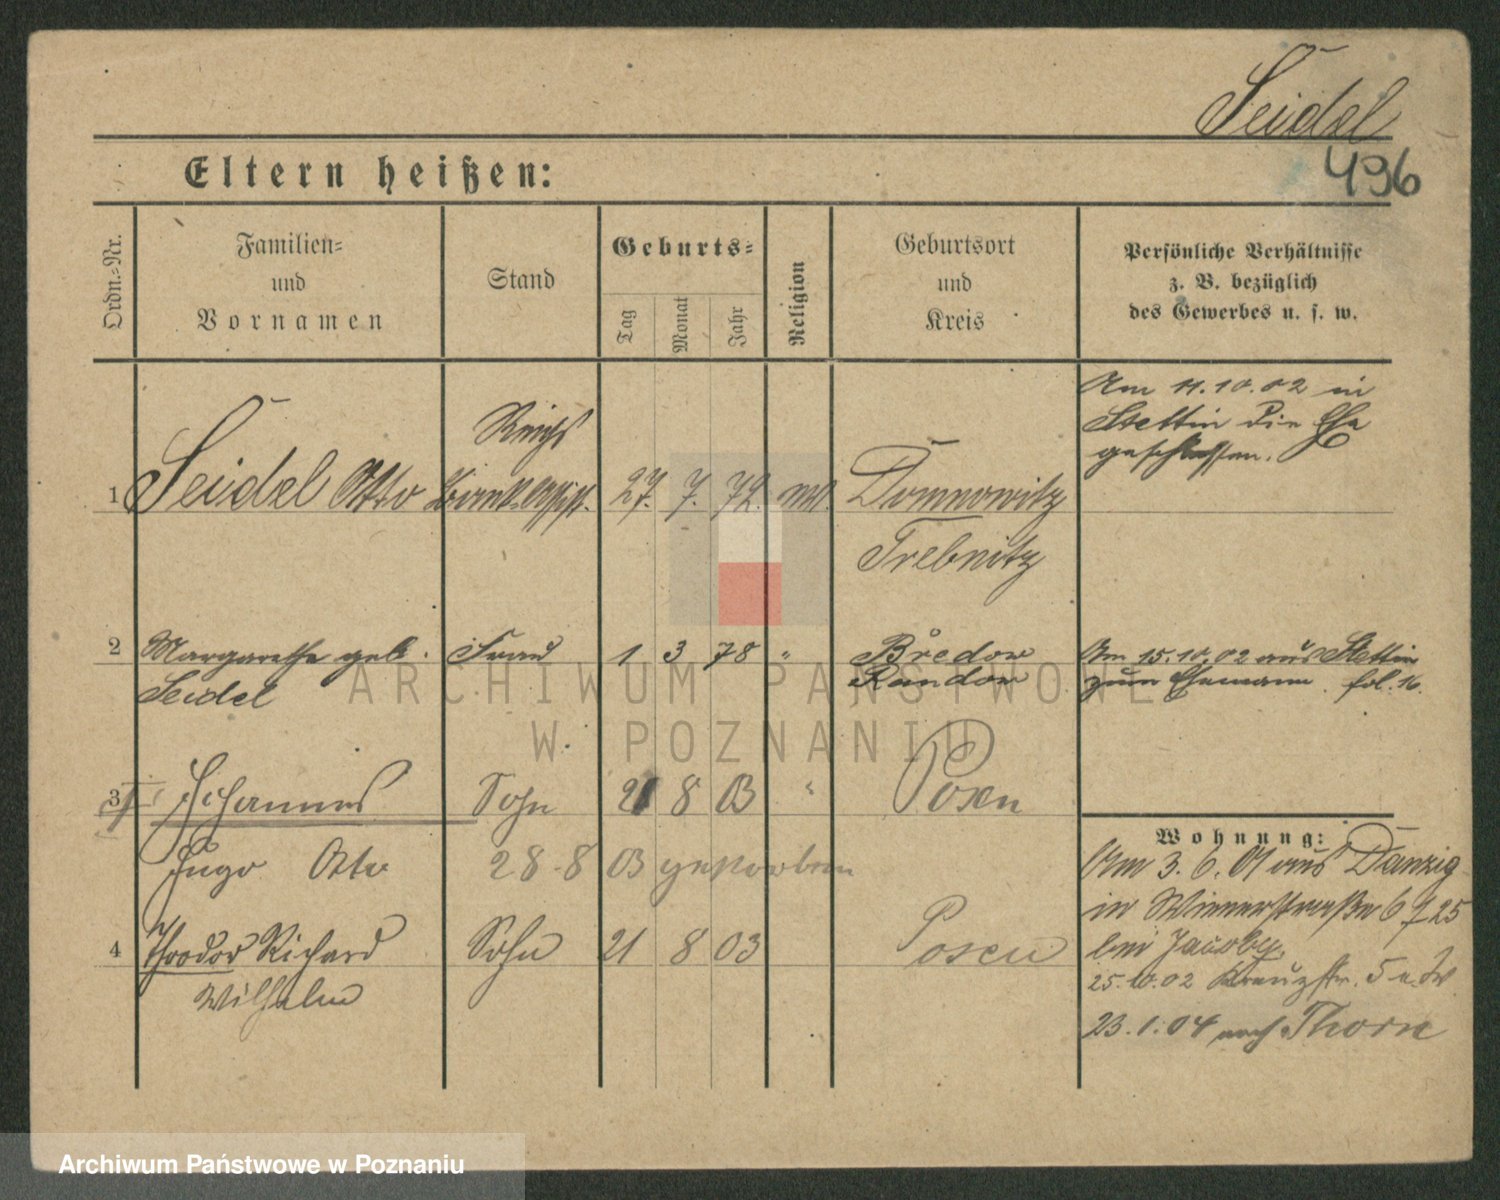 Seidel
Eltern heißen:
496
Ordn.=Nr.
Familien=
und
Vornamen
Stand
Geburts=
Tag
Monat
Jahr
Religion
Geburtsort
und
Kreis
Persönliche Verhältnisse
z. B. bezüglich
des Gewerbes u. s. w.
Am 11.10.02 in
Stettin die Ehe
geschlossen.
Reichs
1 Seidel Otto Bank Assist. 27. 7. 72. Domnowitz
Trebnitz
2 Margarethe geb. Frau 1 3 78 " Bredow
Seidel Randow
Am 15.10.02 aus Stettin
zum Ehemann. fol. 16.
3 Johannes Sohn 21 8 03 " Posen
Hugo Otto 28-8 03 gestorben
4 Theodor Richard Sohn 21 8 03 Posen
Wilhelm
Wohnung:
Am 3. 6. 01 aus Danzig
in Wienerstraße 6
bei Jacoby
25.10.02 Kreuzstr. 5
23.1.04 nach Thorn
ARCHIWUM PAŃSTWOWE
W POZNANIU
Archiwum Państwowe w Poznaniu